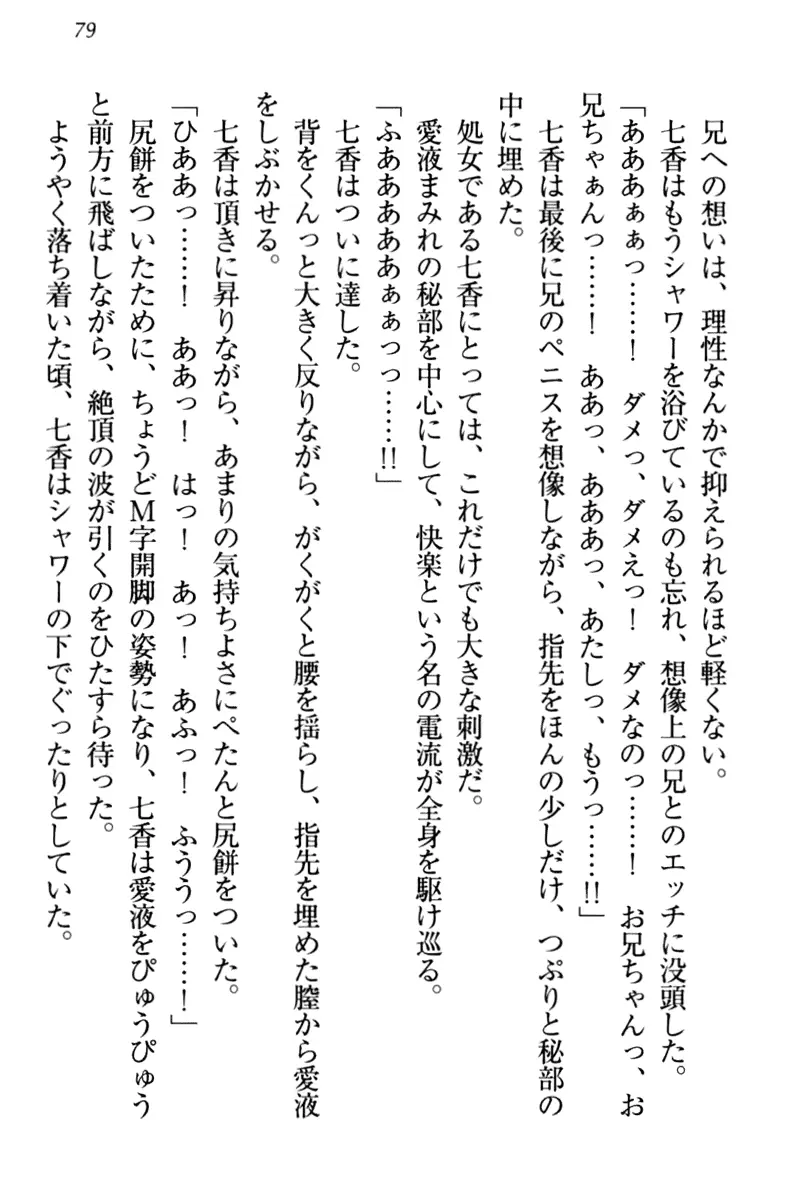 79
兄への想いは、理性なんかで抑えられるほど軽くない。
七香はもうシャワーを浴びているのも忘れ、想像上の兄とのエッチに没頭した。
「あああぁぁっ……！　ダメっ、ダメえっ！　ダメなのっ……！　お兄ちゃんっ、お
兄ちゃぁんっ……！　ああっ、あああっ、あたしっ、もうっ……!!」
七香は最後に兄のペニスを想像しながら、指先をほんの少しだけ、つぷりと秘部の
中に埋めた。
処女である七香にとっては、これだけでも大きな刺激だ。
愛液まみれの秘部を中心にして、快楽という名の電流が全身を駆け巡る。
「ふああああああぁぁっっ……!!」
七香はついに達した。
背をくんっと大きく反りながら、がくがくと腰を揺らし、指先を埋めた膣から愛液
をしぶかせる。
七香は頂きに昇りながら、あまりの気持ちよさにぺたんと尻餅をついた。
「ひああっ……！　ああっ！　はっ！　あっ！　あふっ！　ふううっ……！」
尻餅をついたために、ちょうどＭ字開脚の姿勢になり、七香は愛液をぴゅうぴゅう
と前方に飛ばしながら、絶頂の波が引くのをひたすら待った。
ようやく落ち着いた頃、七香はシャワーの下でぐったりとしていた。